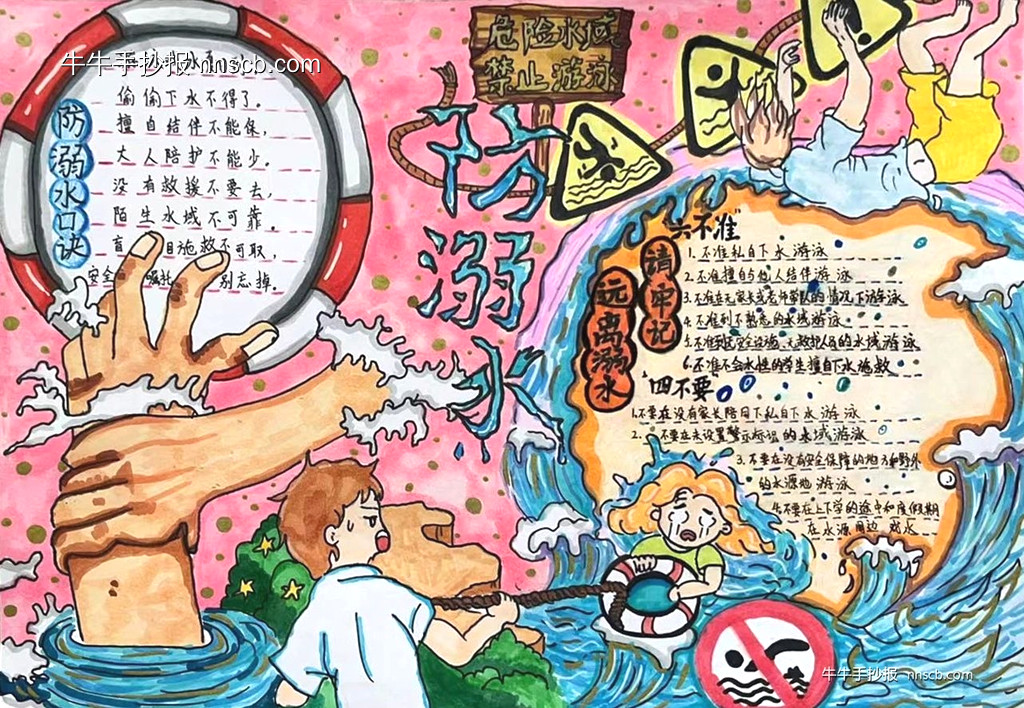 牛牛手抄报 nnscb.com
偷偷下水不得了。
擅自结伴不能保,
大人陪护不能少。
没有救援不要去,
陌生水域不可靠。
盲目施救不可取,
安全嘱托别忘掉。
防溺水口诀
危险水域
禁止游泳
防溺水
六不准"
请牢记
远离溺水
1.不准私自下水游泳
2.不准擅自与他人结伴游泳
3.不准在无家长或老师带队的情况下游泳
4.不准到不熟悉的水域游泳
5.不准到无安全设施、无救护人员的水域游泳
6.不准不会水性的学生擅自下水施救
"四不要
1.不要在没有家长陪同下私自下水游泳
2.不要在未设置警示标识的水域游泳
3.不要在没有安全保障的地方和野外
的水源地游泳
4.不要在上下学的途中和度假期
在水源周边戏水
牛牛手抄报 nnscb.com